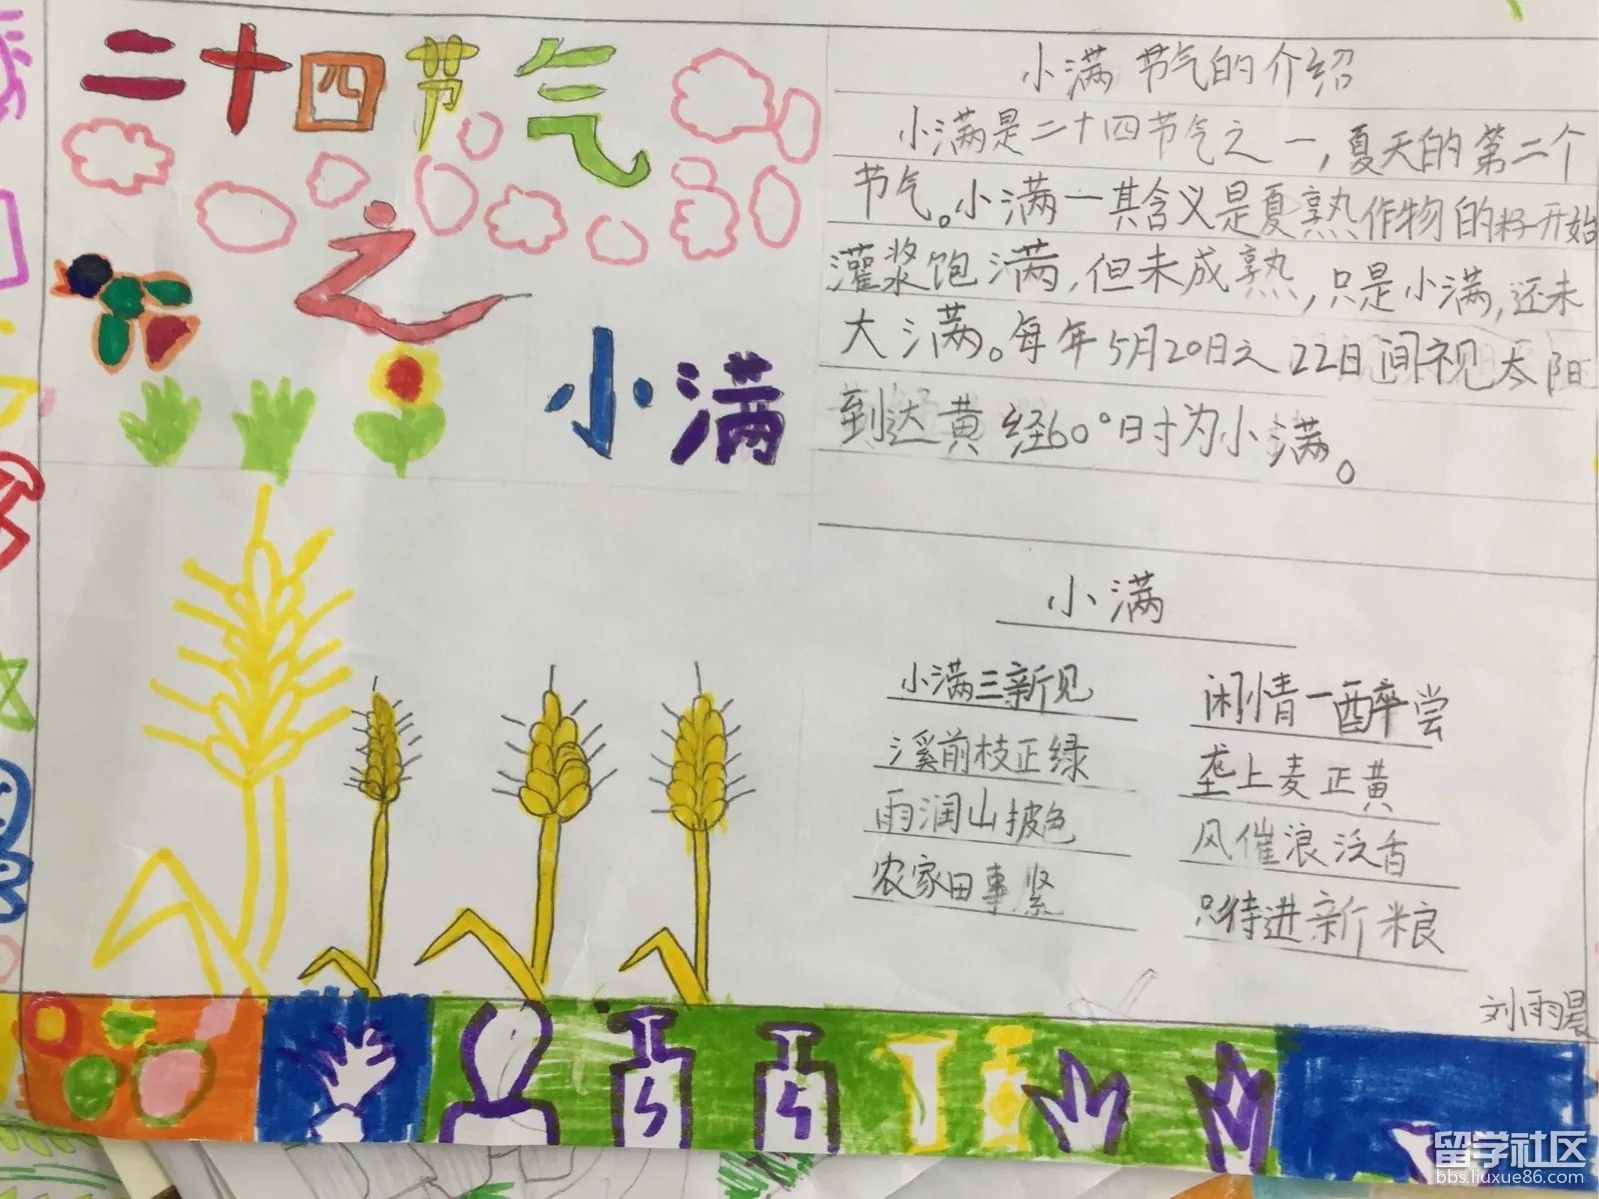 二十四节气
之
小满
小满节气的介绍
小满是二十四节气之一,夏天的第二个
节气。小满一其含义是夏熟作物的籽开始
灌浆饱满,但未成熟,只是小满,还未
大满。每年5月20日之22日间视太阳
到达黄经60°时为小满。
小满
小满三新见
闲情一醉尝
溪前枝正绿
垄上麦正黄
雨润山披色
风催浪泛香
农家田事紧
只待进新粮
刘雨晨
留学社区
bbs.liuxue86.com